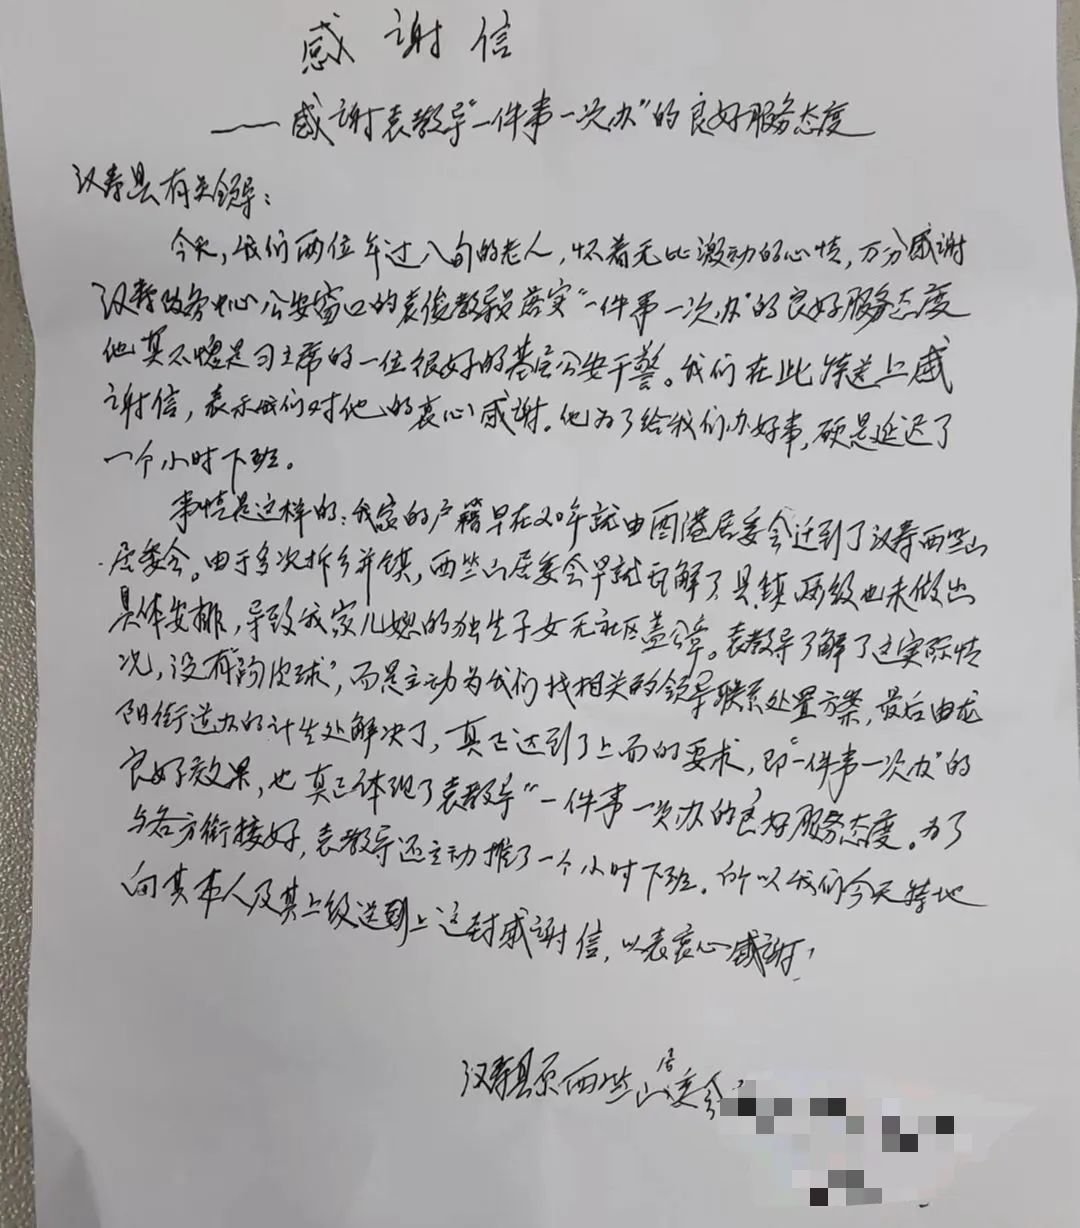 感谢信
——感谢袁教导"一件事一次办"的良好服务态度
汉寿县有关领导：
今天，我们两位年过八旬的老人，怀着无比激动的心情，万分感谢
汉寿政务中心公安窗口的袁俊教导员落实"一件事一次办"的良好服务态度
他真不愧是习主席的一位很好的基层公安干警。我们在此特送上感
谢信，表示我们对他的衷心感谢。他为了给我们办好事，硬是延迟了
一个小时下班。
事情是这样的：我家的户籍早在20年就由酉港居委会迁到了汉寿西竺山
居委会。由于多次拆乡并镇，西竺山居委会早就瓦解了县镇两级也未做出
具体安排，导致我家儿媳的独生子女无社区盖公章。袁教导了解了这实际情
况，没有"踢皮球"，而是主动为我们找相关的领导联系处置方案，最后由龙
阳街道办的计生处解决了，真正达到了上面的要求，即"一件事一次办"的
良好效果，也真正体现了袁教导"一件事一次办的"良好服务态度。为了
与各方衔接好，袁教导还主动推了一个小时下班。所以我们今天特地
向其本人及其上级送到上这封感谢信，以表衷心感谢！
汉寿县原西竺山居委会